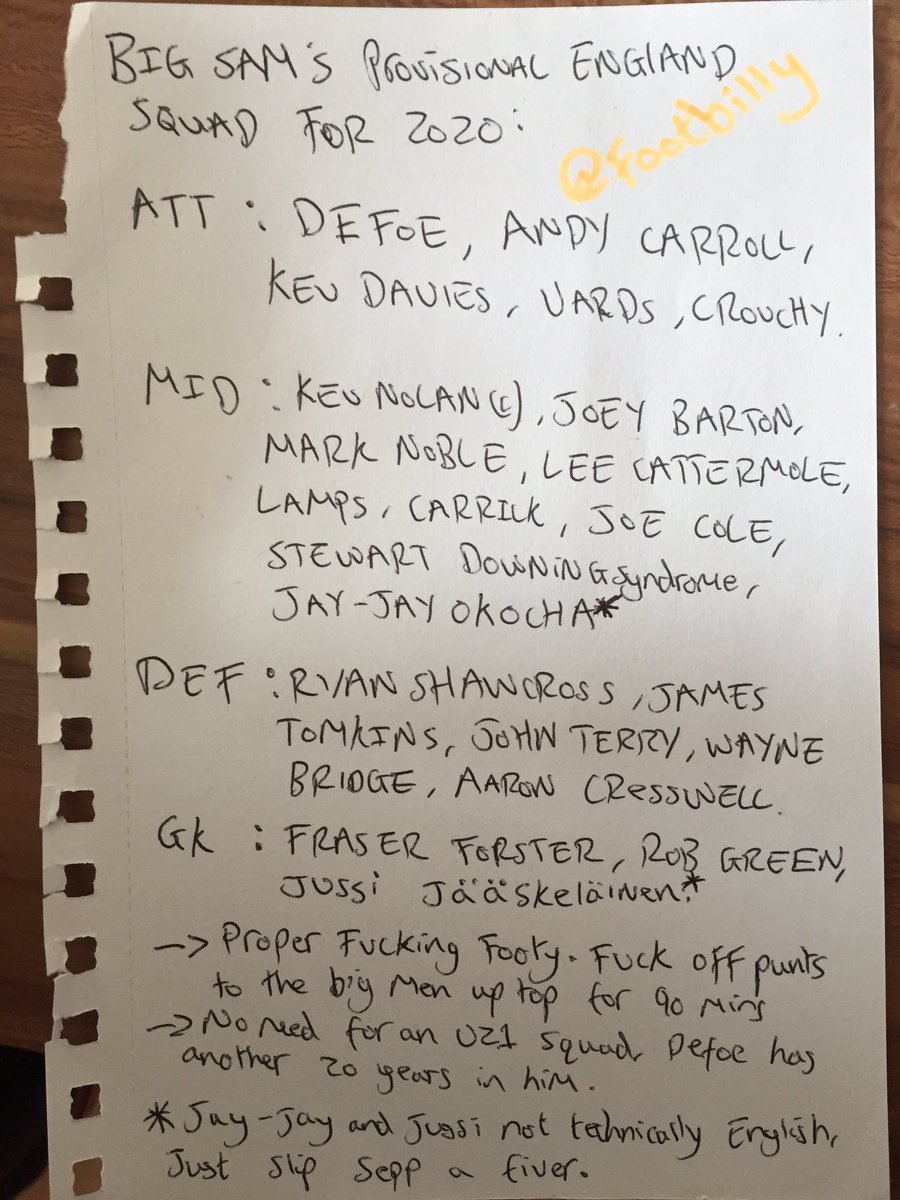 BIG SAM'S PROVISIONAL ENGLAND
SQUAD FOR 2020:
@footbilly
ATT : DEFOE, ANDY CARROLL,
KEV DAVIES, VARDS, CROUCHY.
MID : KEV NOLAN (C), JOEY BARTON,
MARK NOBLE, LEE CATTERMOLE,
LAMPS, CARRICK, JOE COLE,
STEWART DOWNINGsyndrome,
JAY-JAY OKOCHA*
DEF : RYAN SHAWCROSS, JAMES
TOMKINS, JOHN TERRY, WAYNE
BRIDGE, AARON CRESSWELL.
GK : FRASER FORSTER, ROB GREEN,
JUSSI Jääskeläinen.*
-> Proper Fucking Footy. Fuck off punts
to the big men up top for 90 mins
-> No need for an U21 squad, Defoe has
another 20 years in him.
* Jay-Jay and Jussi not technically English,
Just slip Sepp a fiver.